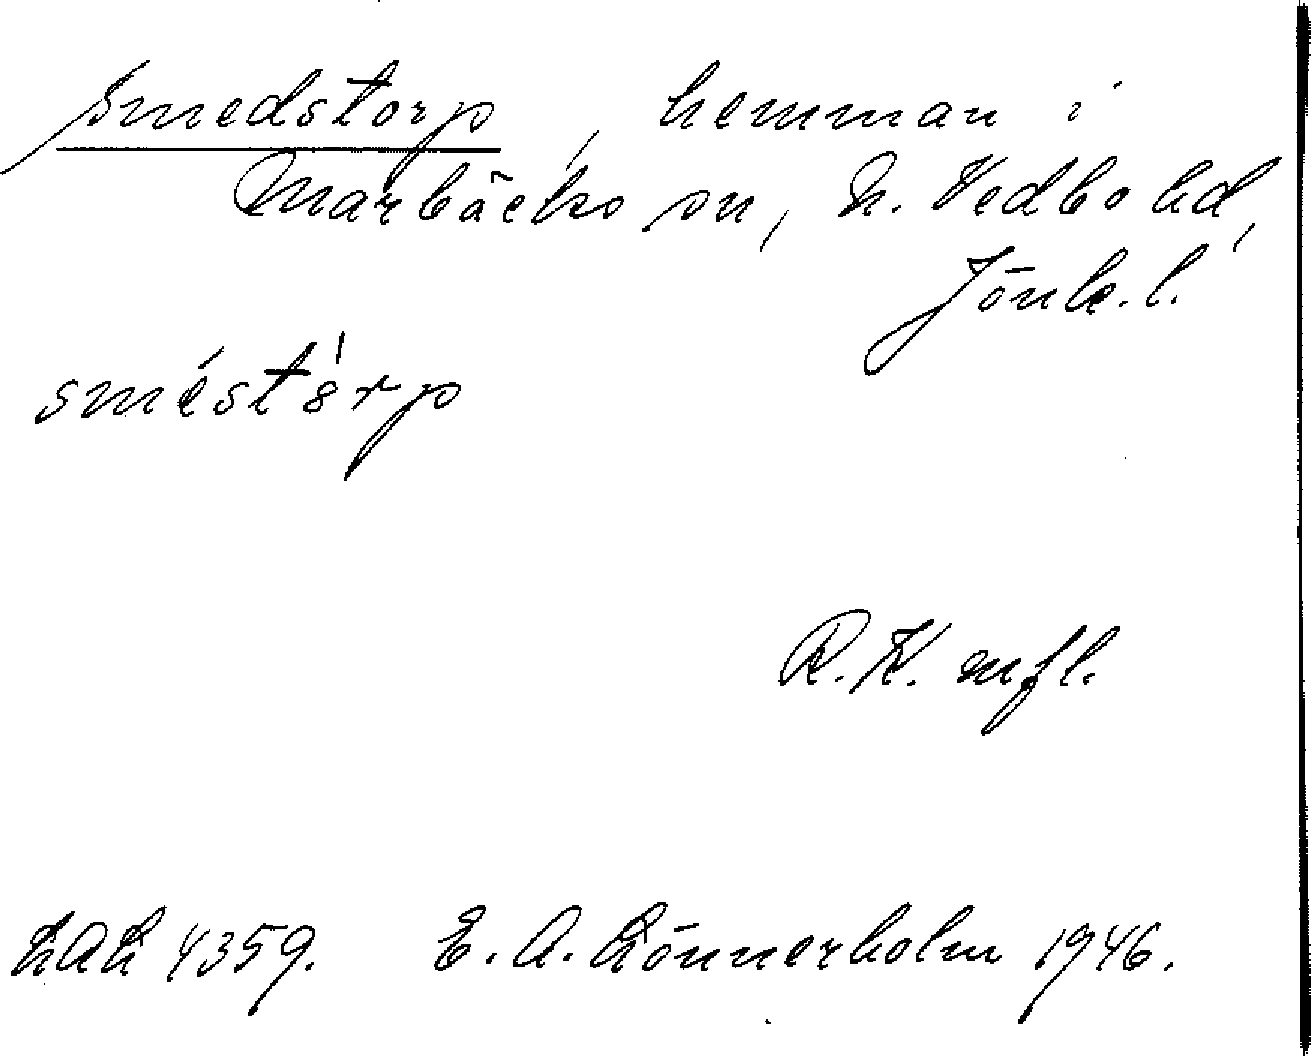 Smedstorp, hemman i
Marbäcks sn, N. Vedbo hd,
Jönk. l.
sméstórp
R. K. m fl.
LAL 4359. E. A. Lönnerholm 1946.